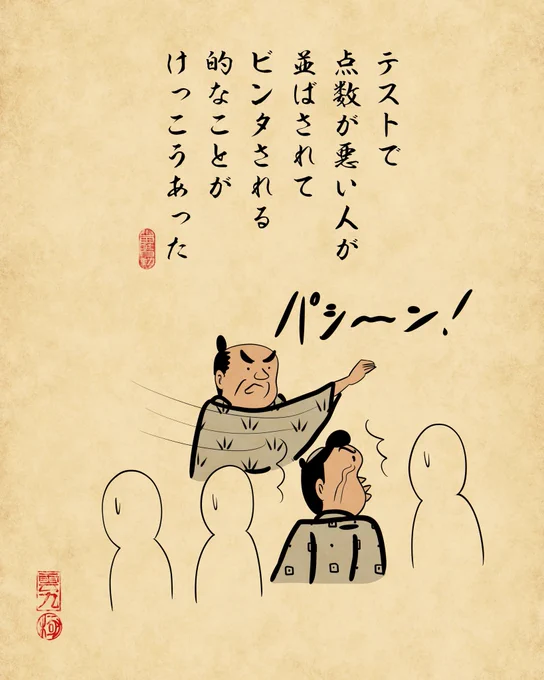 テストで
点数が悪い人が
並ばされて
ビンタされる
的なことが
けっこうあった
パシ〜ン!